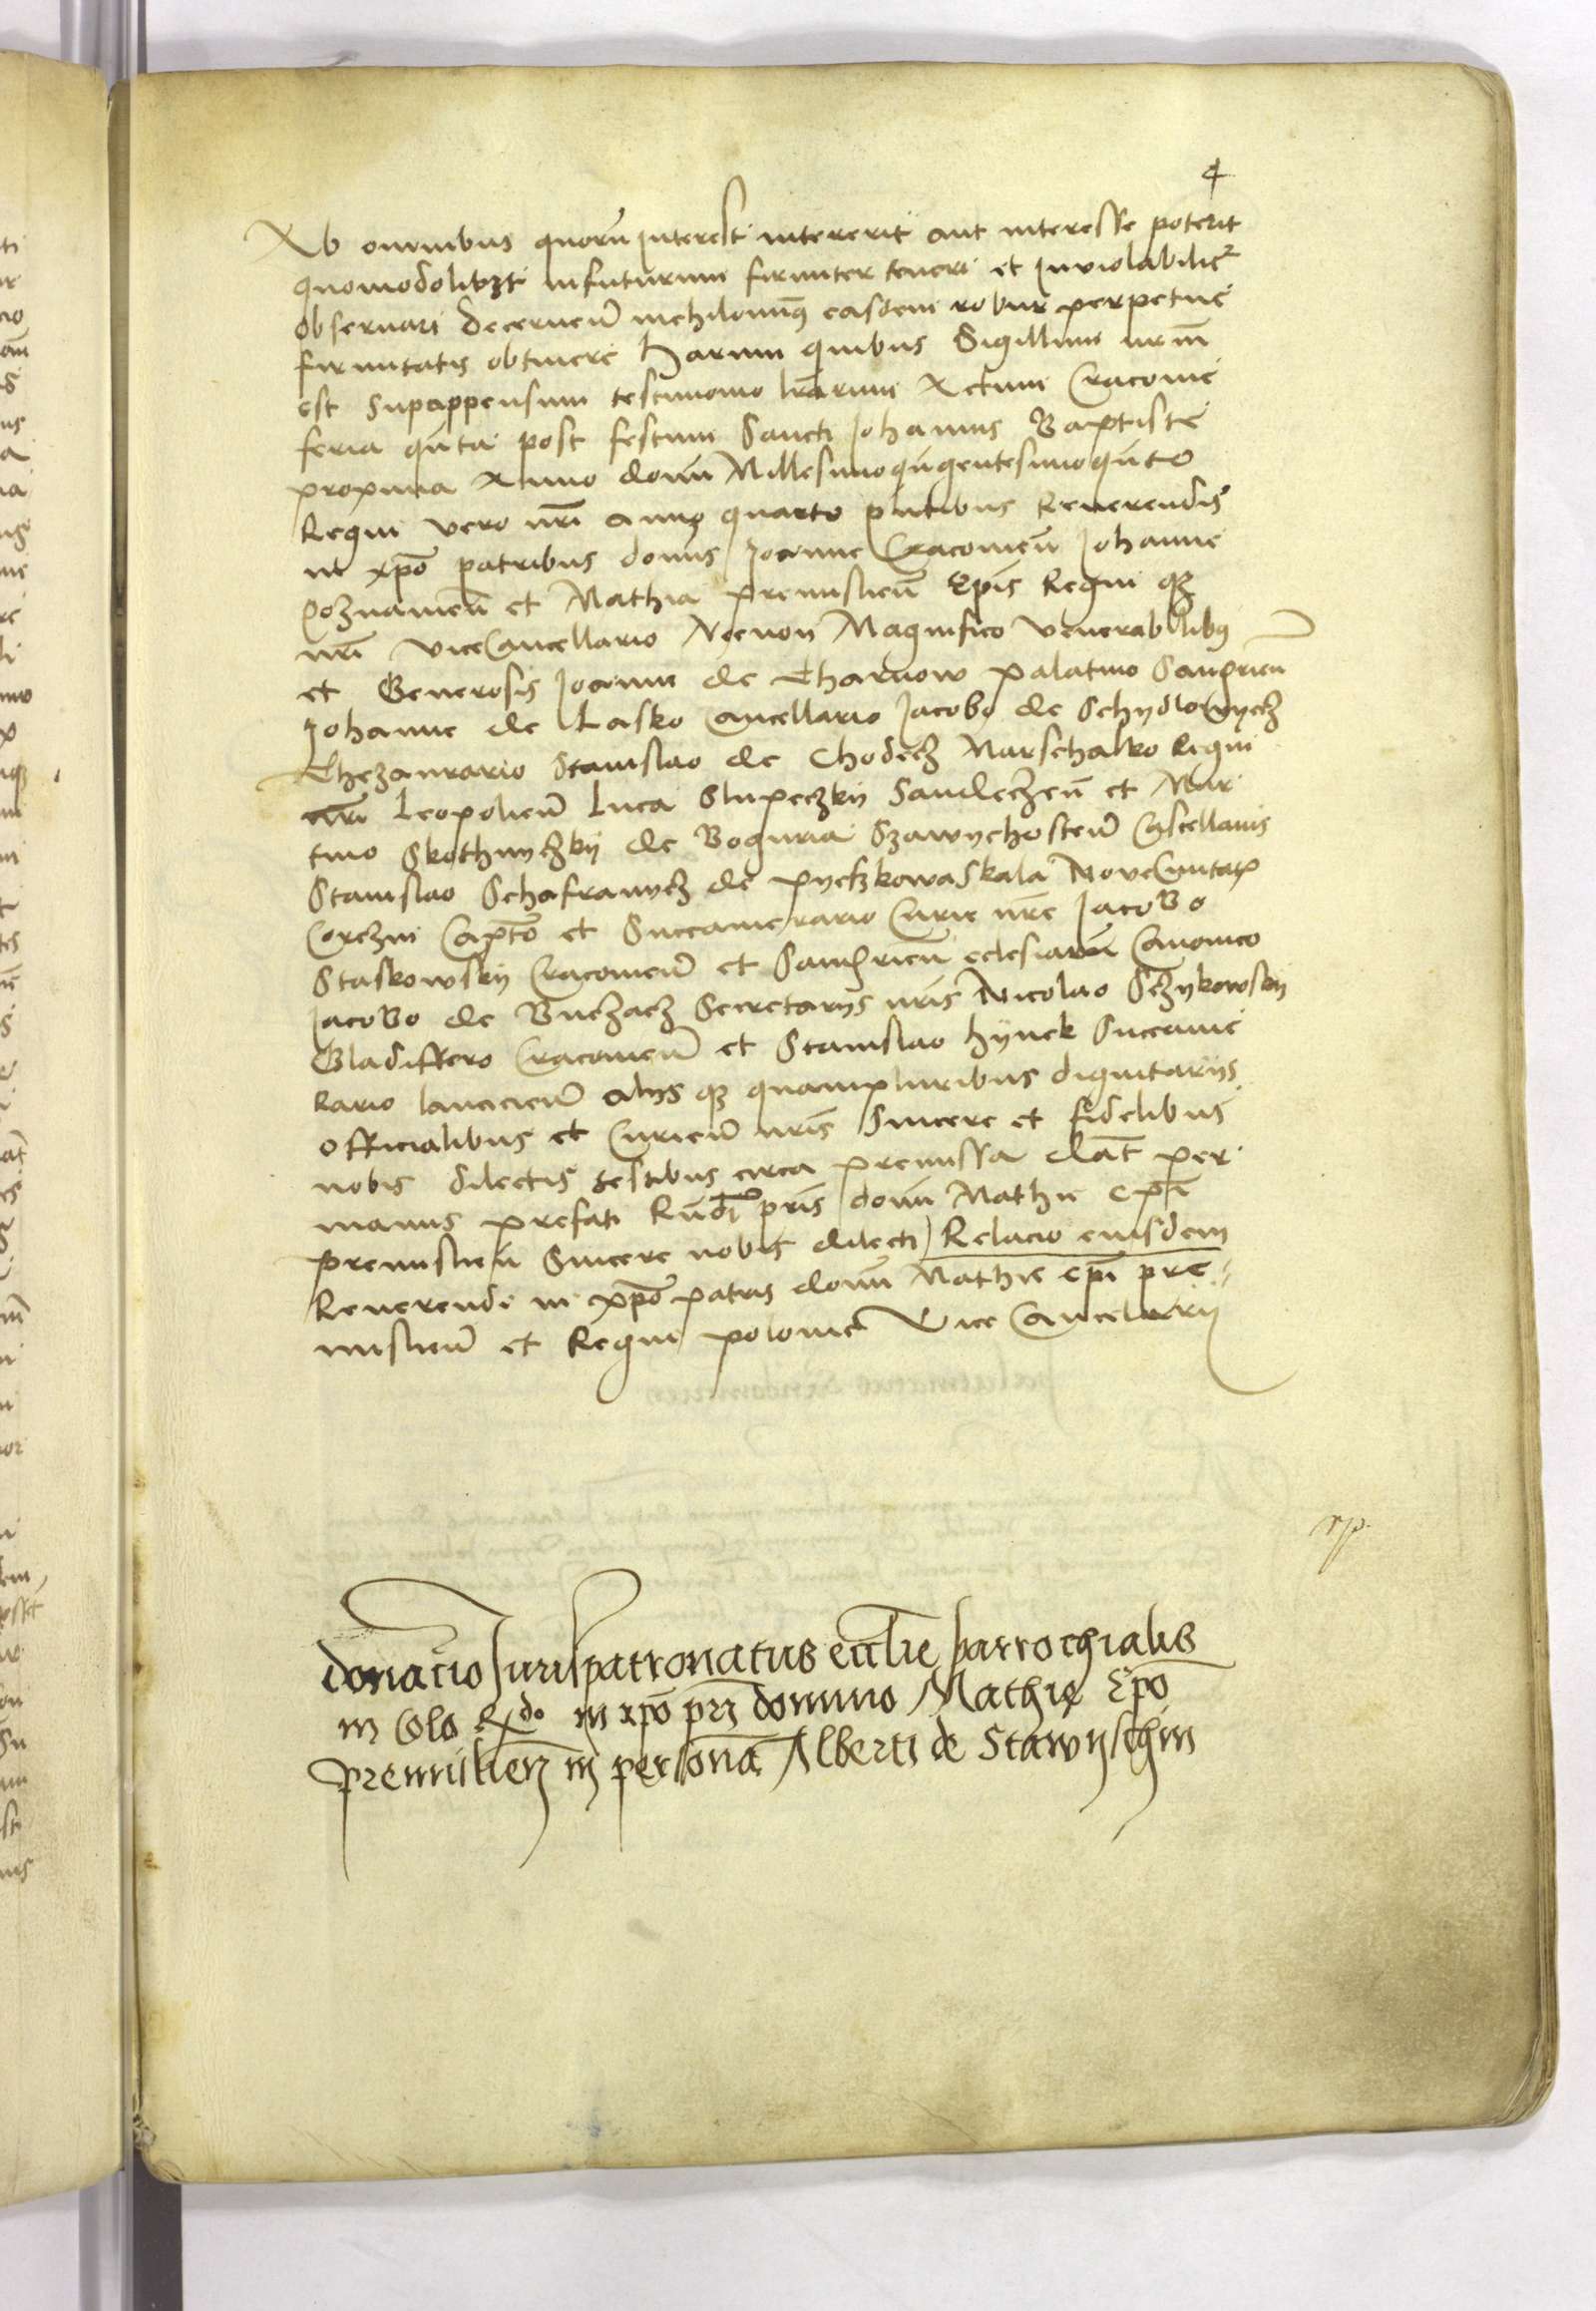 4
Ab omnibus quorū interest intererit aut interesse poterit
quomodolibzt infuturum firmiter teneri et Inviolabilit
observari decernen̄ nichilominq easdem robur perpetue
firmitatis obtinere Harum quibus Sigillum nrm̄
est Supappensum testimonio lrārum Actum Cracovie
feria qūta post festum Sancti Johannis Baptiste
proxima Anno domī Millesimoqūgentesimoqūto
Regni vero nrī anno quarto pntibus Reverendis
in xpō patribus domīs Joanne Cracovien̄ Johanne
Poznanien̄ et Mathia Premislien̄ Epīs Regni qz
nrī viceCancellario Necnon Magnifico venerabilibq
et Generosis Joanne de Tharnow palatino Sandrien̄
Johanne de Lasko Cancellario Jacobo de Schydlowyecz
Thezaurario Stanislao de Chodecz Marschalko Regni
nrī Leopolien̄ Luca Slupeczky Sandeczen̄ et Mar
tino Skothnyczky de Boguria Szawychosten̄ Castellanis
Stanislao Schafranyecz de pyeczkowaSkala NoveCyvitatis
Corczin Capto et Succamerario Curie nrē Jacobo
Staskowsky Cracovien̄ et Sandrien̄ eclesiarū Canonico
Jacobo de Buczacz Secretarys nrīs Nicolao Sczykowsky
Gladiffero Cracovien̄ et Stanislao hynek Succame
rario lancicien̄ alys qz quampluribus dignitarys
officialibus et Curien̄ nrīs Sincere et fidelibus
nobis dilectis testibus circa premissa dat̄ per
manus prefati Rn̄di prīs domī Mathie epī
premislien̄ Sincere nobis dilecti Relacio eiusdem
Reverendi in xpō patris domī Mathie epī pre
mislien̄ et Regni polonie Vice Cancellarii
rp.
donacio Jurispatronatus ecclie parrochialis
in Colo Rdo in xpō prī domino Mathie Epō
premislien̄ in personā Alberti de Stawyschin